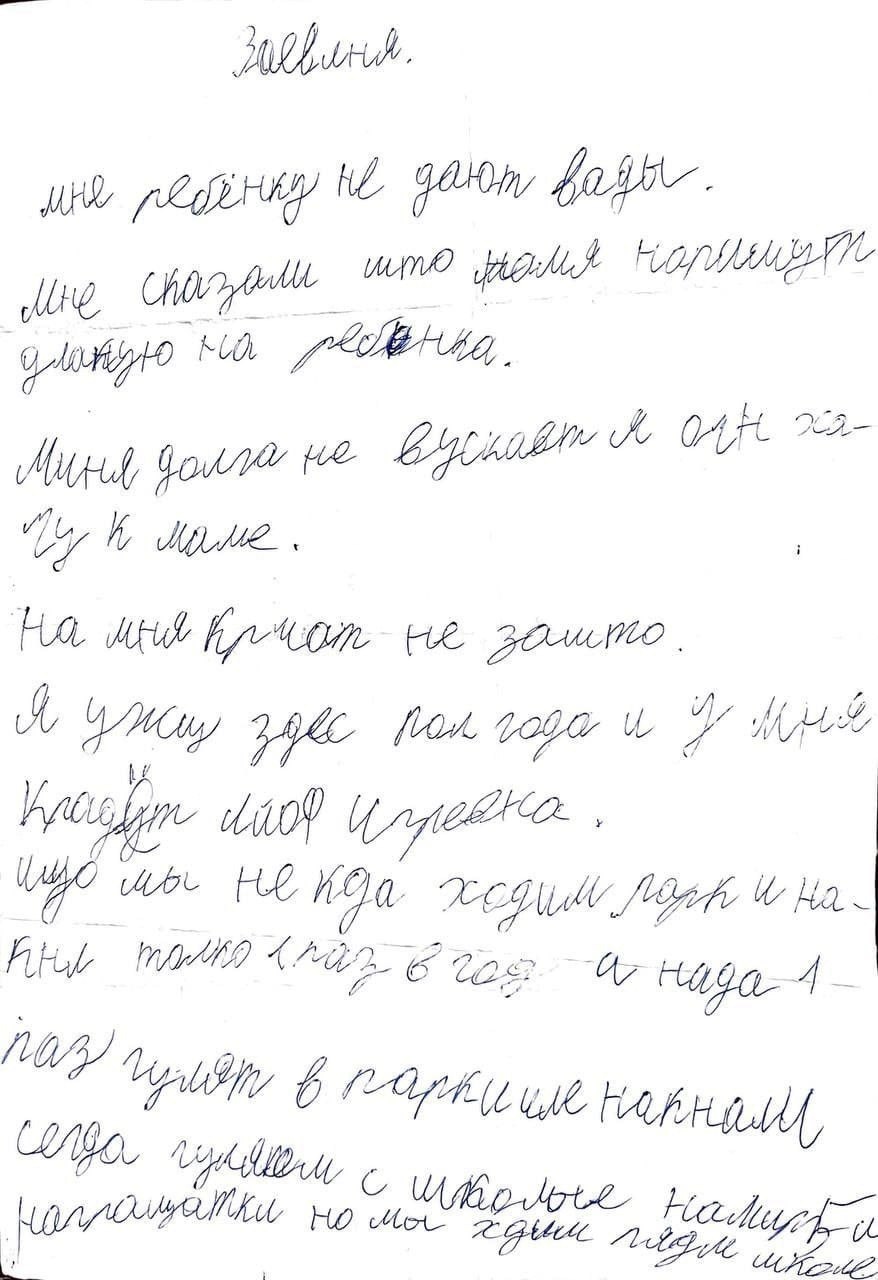 Заевлня.
мне ребёнку не дают вады.
Мне сказали што намя напишут
длакую на ребёнка.
Миня долга не вускает я очн ха-
чу к маме.
На мня кричат не зашто.
Я ужы здес пол года и у мня
крадут мйоя игревка.
ищо мы не кда ходим парк и на-
кнл толко 1 раз в год а нада 1
раз гулят в парки иле накнали
сегда гуляем с школые
напращатки но мы хдим рядм школе